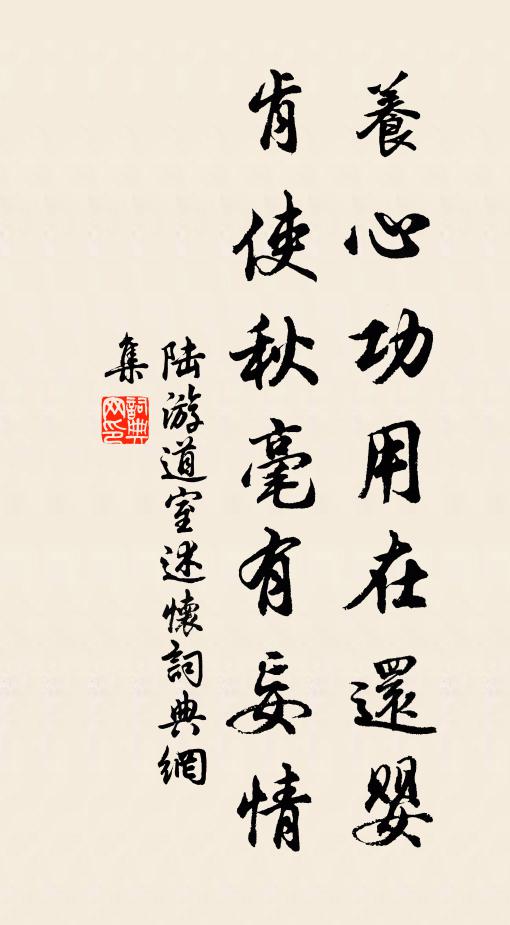 養心功用在還嬰
肯使秋毫有妄情
陆游道室述懷詞典網
集
詞典網印